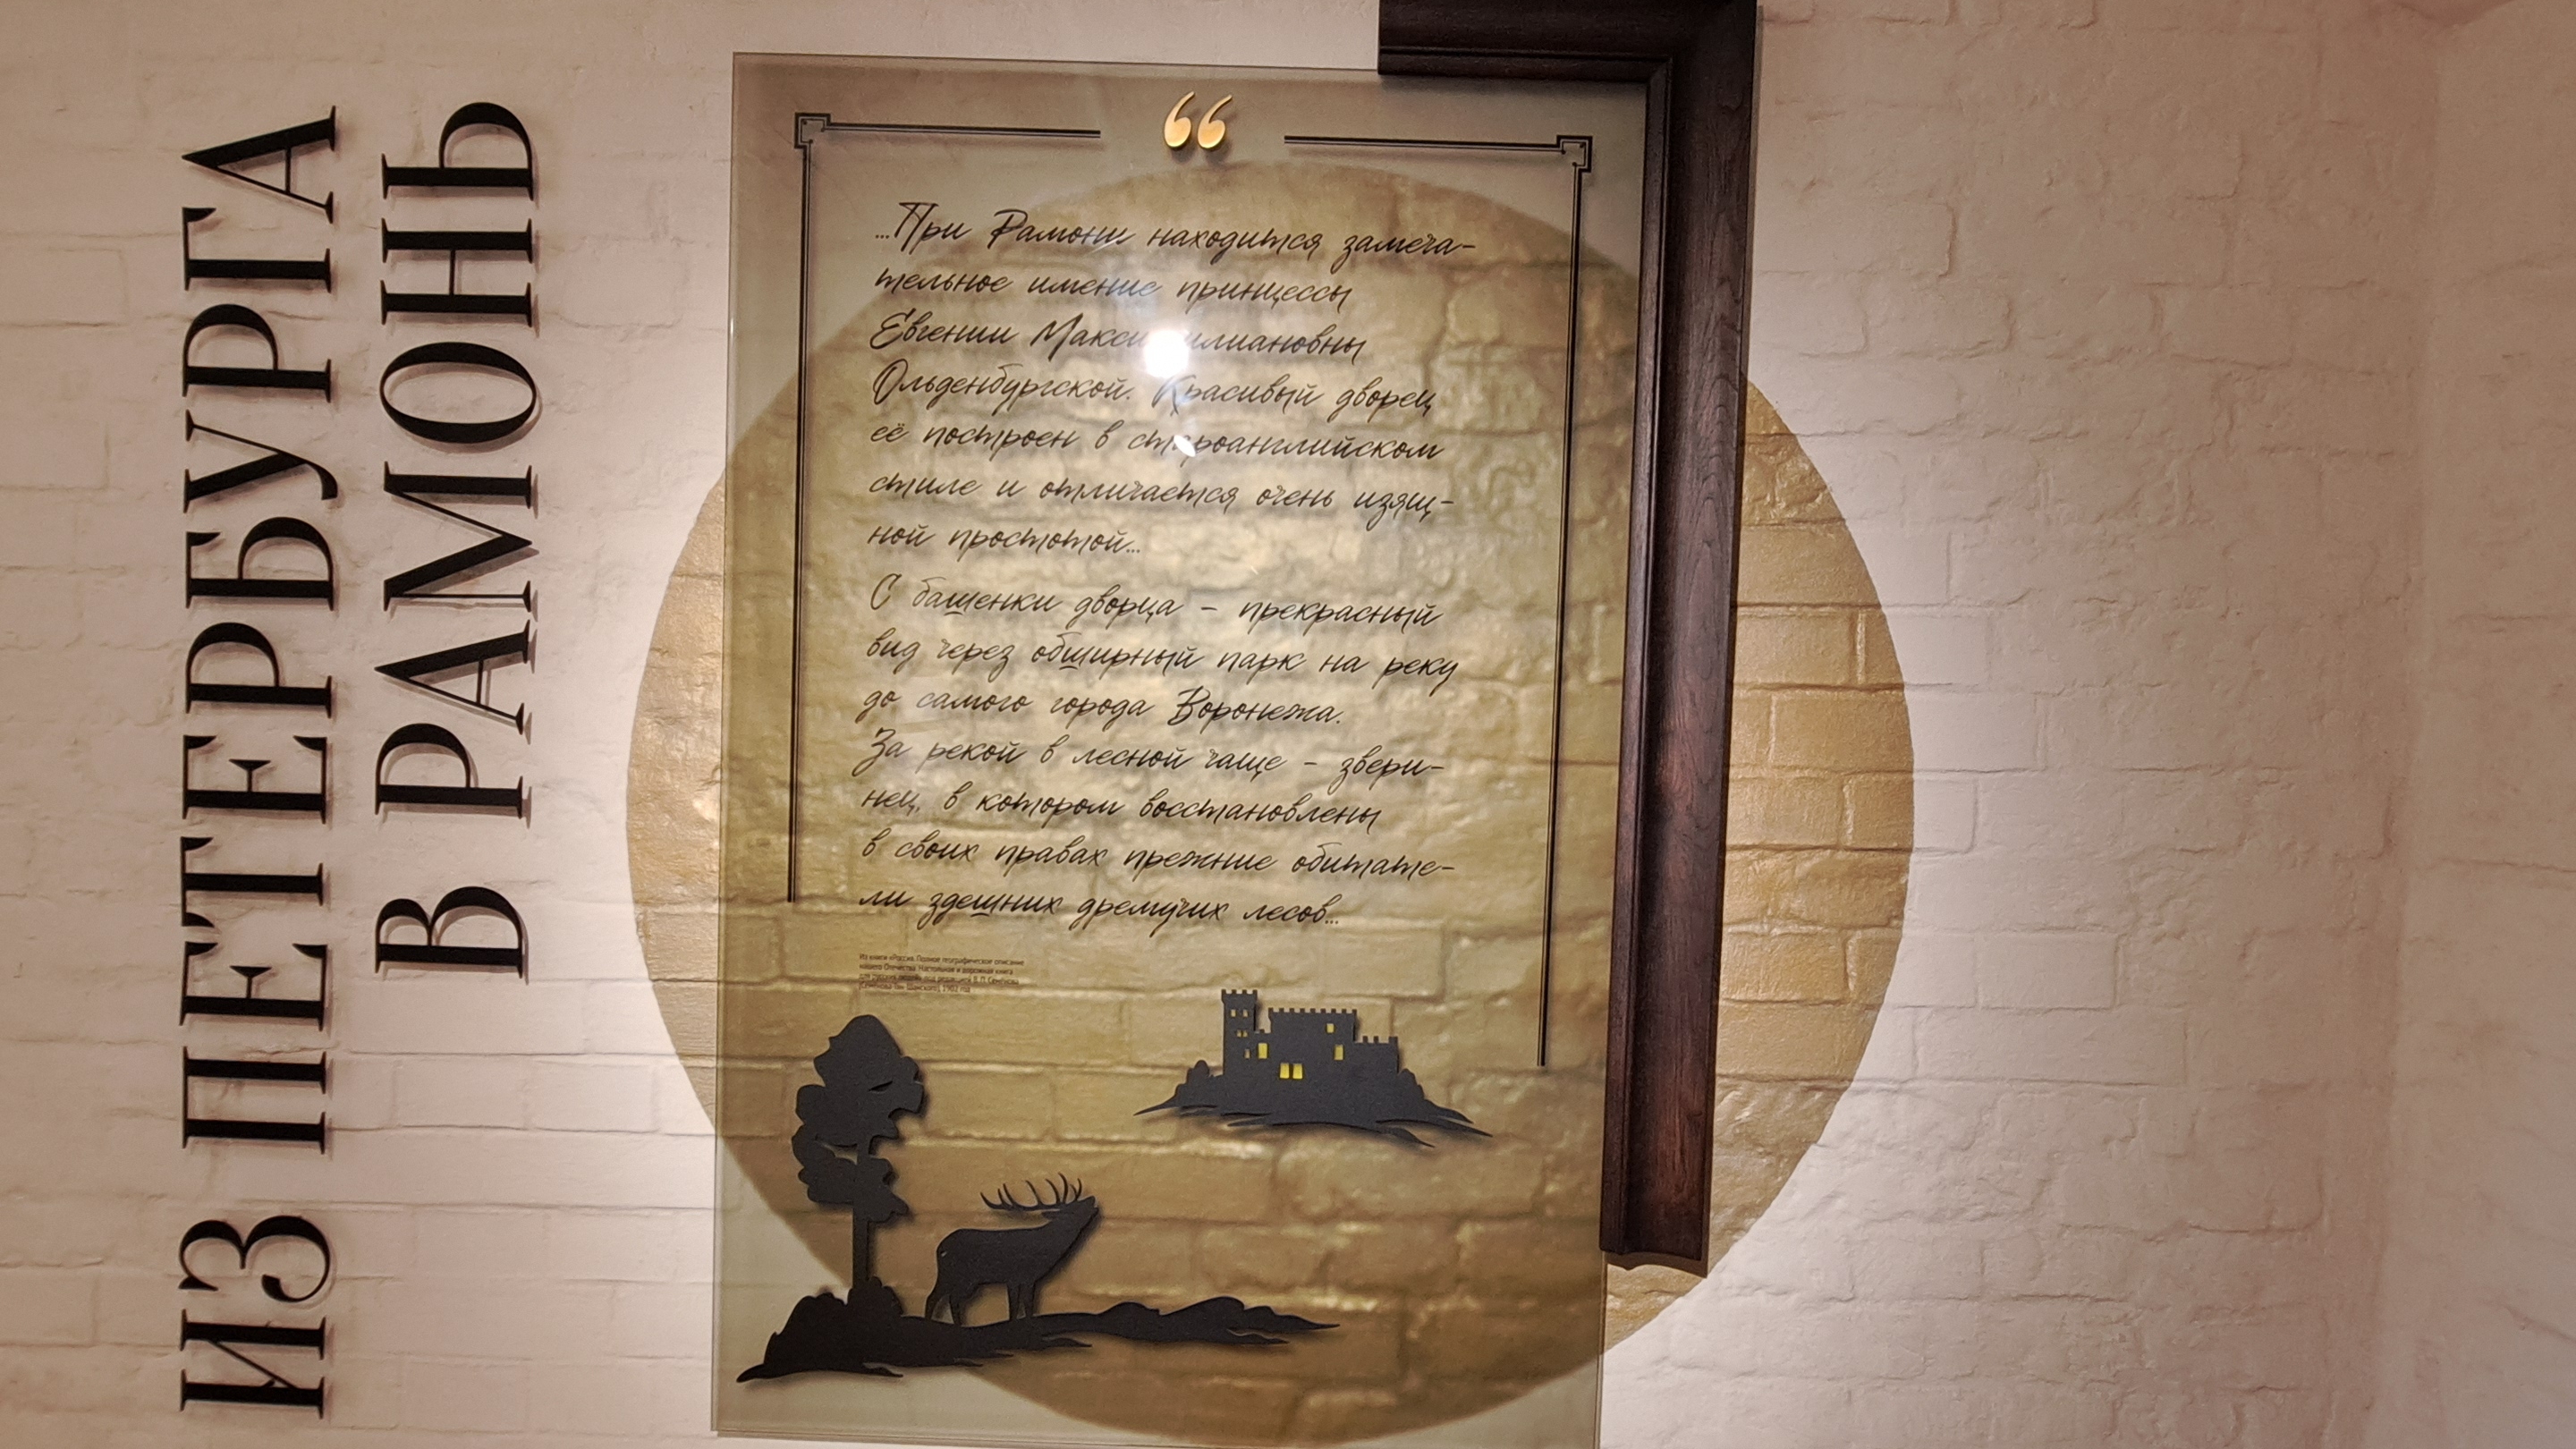 ИЗ ПЕТЕРБУРГА
В РАМОНЬ
“
...При Рамони находится замеча-
тельное имение принцессы
Евгении Максимилиановны
Ольденбургской. Красивый дворец
её построен в староанглийском
стиле и отличается очень изящ-
ной простотой...
С башенки дворца – прекрасный
вид через обширный парк на реку
до самого города Воронежа.
За рекой в лесной чаще – звери-
нец, в котором восстановлены
в своих правах прежние обитате-
ли здешних дремучих лесов...
Из книги «Россия. Полное географическое описание
нашего Отечества. Настольная и дорожная книга
для русских людей» под редакцией В. П. Семёнова
(Семёнова-Тян-Шанского), 1902 год